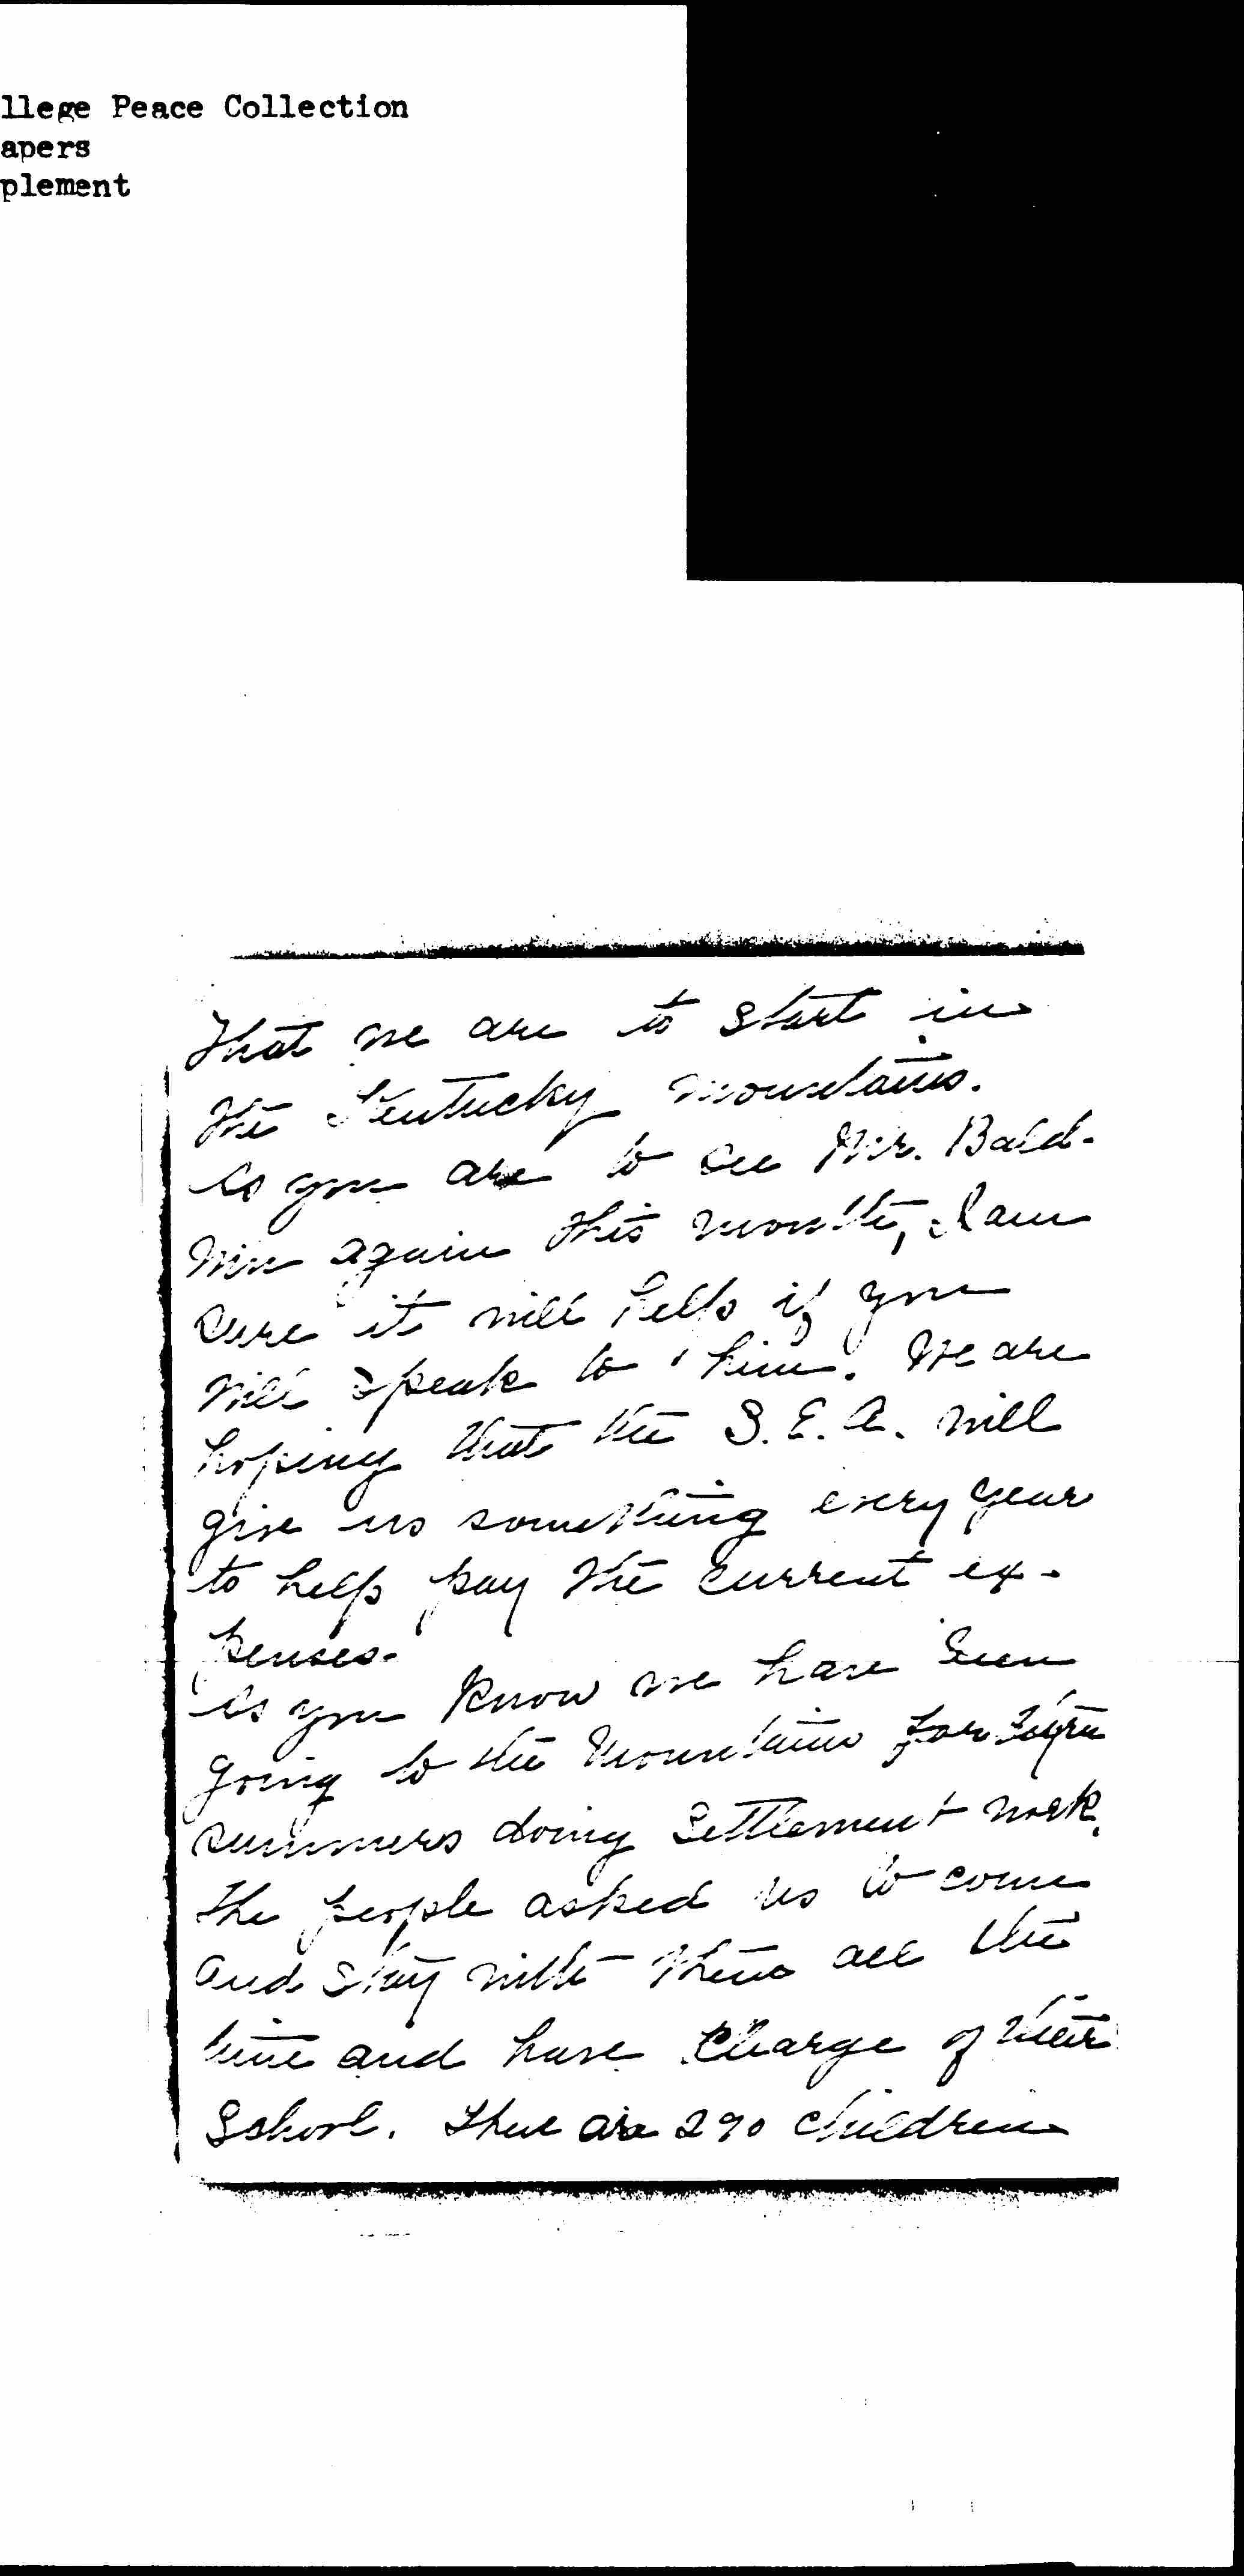 llege Peace Collection
apers
plement
that we are to start in
the Kentucky mountains.
As you are to see Mr. Bald-
win again this month, I am
sure it will help if you
will speak to him. We are
hoping that the S. E. A. will
give us something every year
to help pay the current ex-
penses.
As you know we have been
going to the mountains for
summers doing Settlement work.
The people asked us to come
and stay with them all the
time and have charge of their
School. There are 290 children